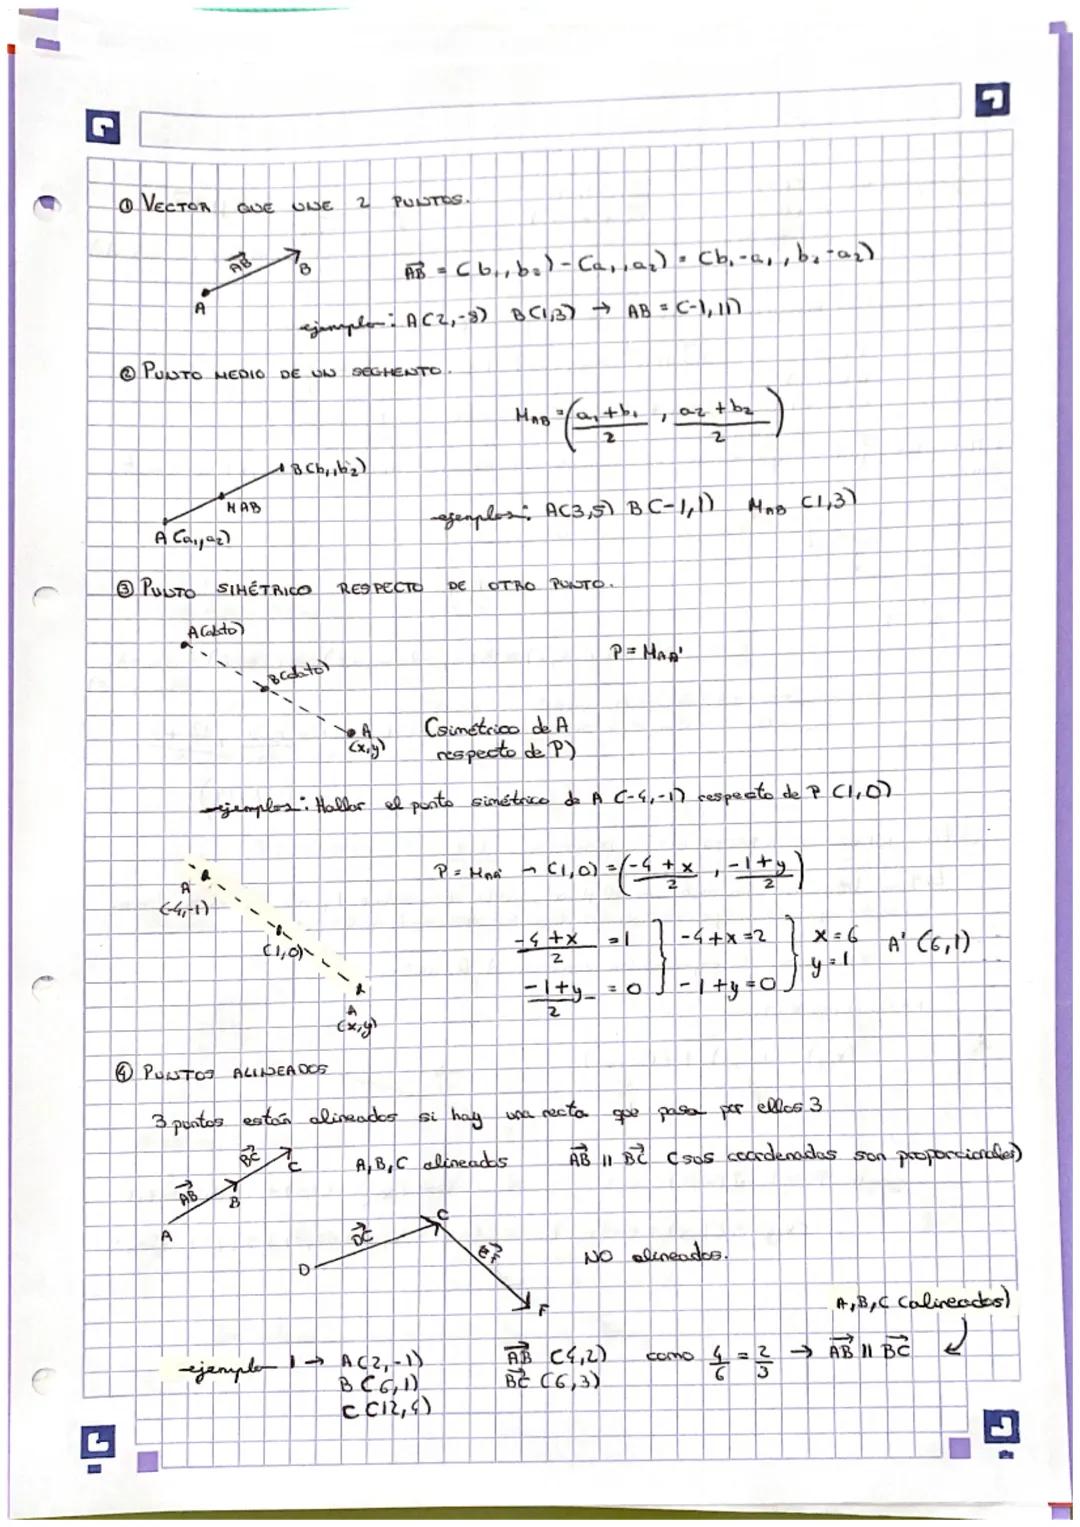 ① VECTOR QUE UNE 2 PUNTOS.
AB
B
A
AB = (b₁, b₂) - (a₁, a₂) = (b₁-a₁, b₂-a₂)
ejemplo: A(2,-8) B(1,3) → AB = (-1, 11)
② PUNTO MEDIO DE UN SEGMENTO.
M_AB = (a₁+b₁/2, a₂+b₂/2)
B(b₁, b₂)
M AB
A(a₁, a₂)
ejemplos: A(3,5) B(-1,1) M_AB (1,3)
③ PUNTO SIMÉTRICO RESPECTO DE OTRO PUNTO.
A(dato)
B(dato)
P = M_AA'
A
(x,y)
(simétrico de A
respecto de P)
ejemplos: Hallar el punto simétrico de A (-4,-1) respecto de P (1,0)
P = M_AA' → (1,0) = (-4+x/2, -1+y/2)
A
(-4,-1)
(1,0)
A
(x,y)
-4+x/2 = 1 } -4+x=2 } x=6 A' (6,1)
-1+y/2 = 0 } -1+y=0 } y=1
④ PUNTOS ALINEADOS
3 puntos están alineados si hay una recta que pasa por ellos 3
AB BC
A B C
A, B, C alineados AB || BC (sus coordenadas son proporcionales)
DC
D C F
NO alineados.
A, B, C (alineados)
ejemplo 1 → A(2,-1) AB (4,2) como 4/6 = 2/3 → AB || BC
B(6,1) BC (6,3)
C(12,4)